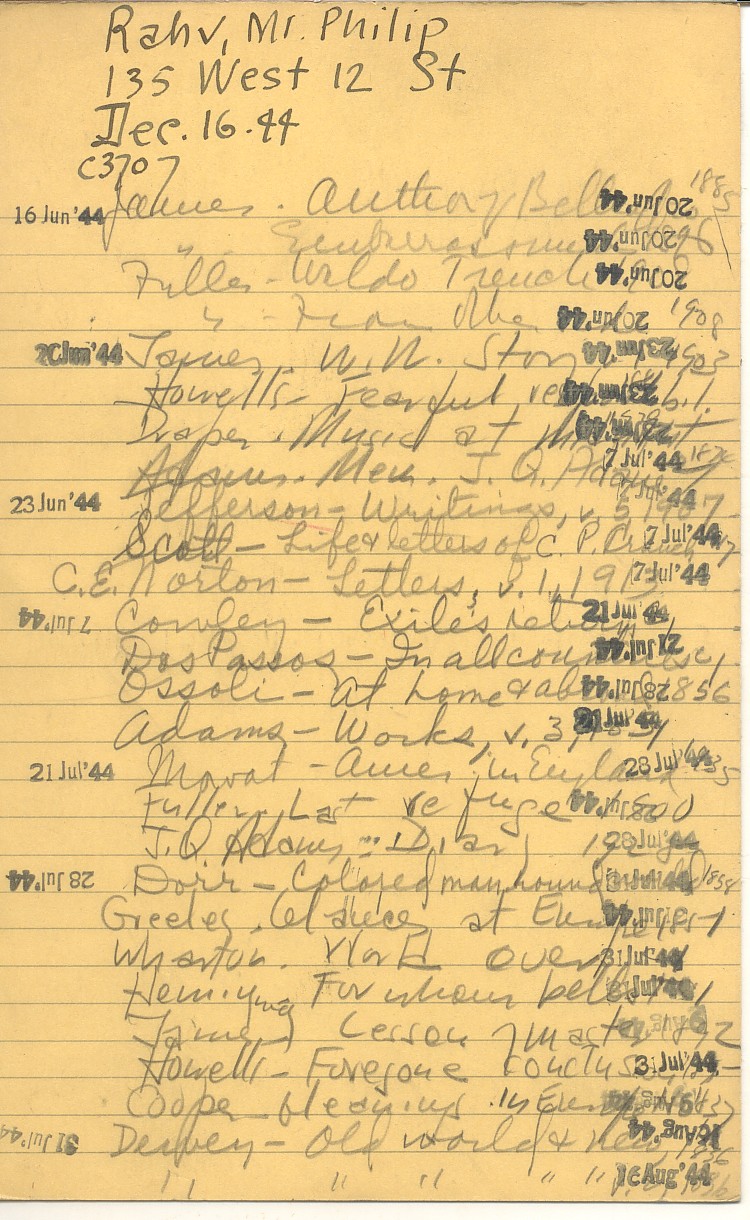 Rahv, Mr. Philip
135 West 12 St
Dec. 16.44
C3707
16 Jun '44 James. Author of Bel 20 Jun '44 1885
" 20 Jun '44
Fuller - Waldo Trench 20 Jun '44
" - From 20 Jun '44 1908
20 Jun '44 James, W.W. Story 23 Jun '44 1903
Howells - Fearful res 23 Jun '44
Draper. Music at mid
Adams. Mem. J. Q. Adams 7 Jul '44
23 Jun '44 Jefferson - Writings, v. 5 Jul '44
Scott - Life & letters of C. P. 7 Jul '44
C.E. Norton - Letters, v. 1, 1913 7 Jul '44
7 Jul '44 Cowley - Exile's return 21 Jul '44
Dos Passos - In all countries 21 Jul '44
Ossoli - At home & ab 28 Jul '44 1856
Adams - Works, v. 3, 21 Jul '44
21 Jul '44 Mowat - Amer. in England 28 Jul '44
Fuller. Last refuge 28 Jul '44
J. Q Adams - Diary 28 Jul '44
28 Jul '44 Dorr - Colored man round 31 Jul '44 1858
Greeley. Glances at Europe 31 Jul '44 1851
Wharton. World over 31 Jul '44
Hemingway For whom bell 31 Jul '44
James Lesson master Aug '44
Howells - Foregone conclus 31 Jul '44
Cooper - Gleanings in Europe Aug '44 1837
31 Jul '44 Dewey - Old world & new, 16 Aug '44 1836
" " " " " 16 Aug '44